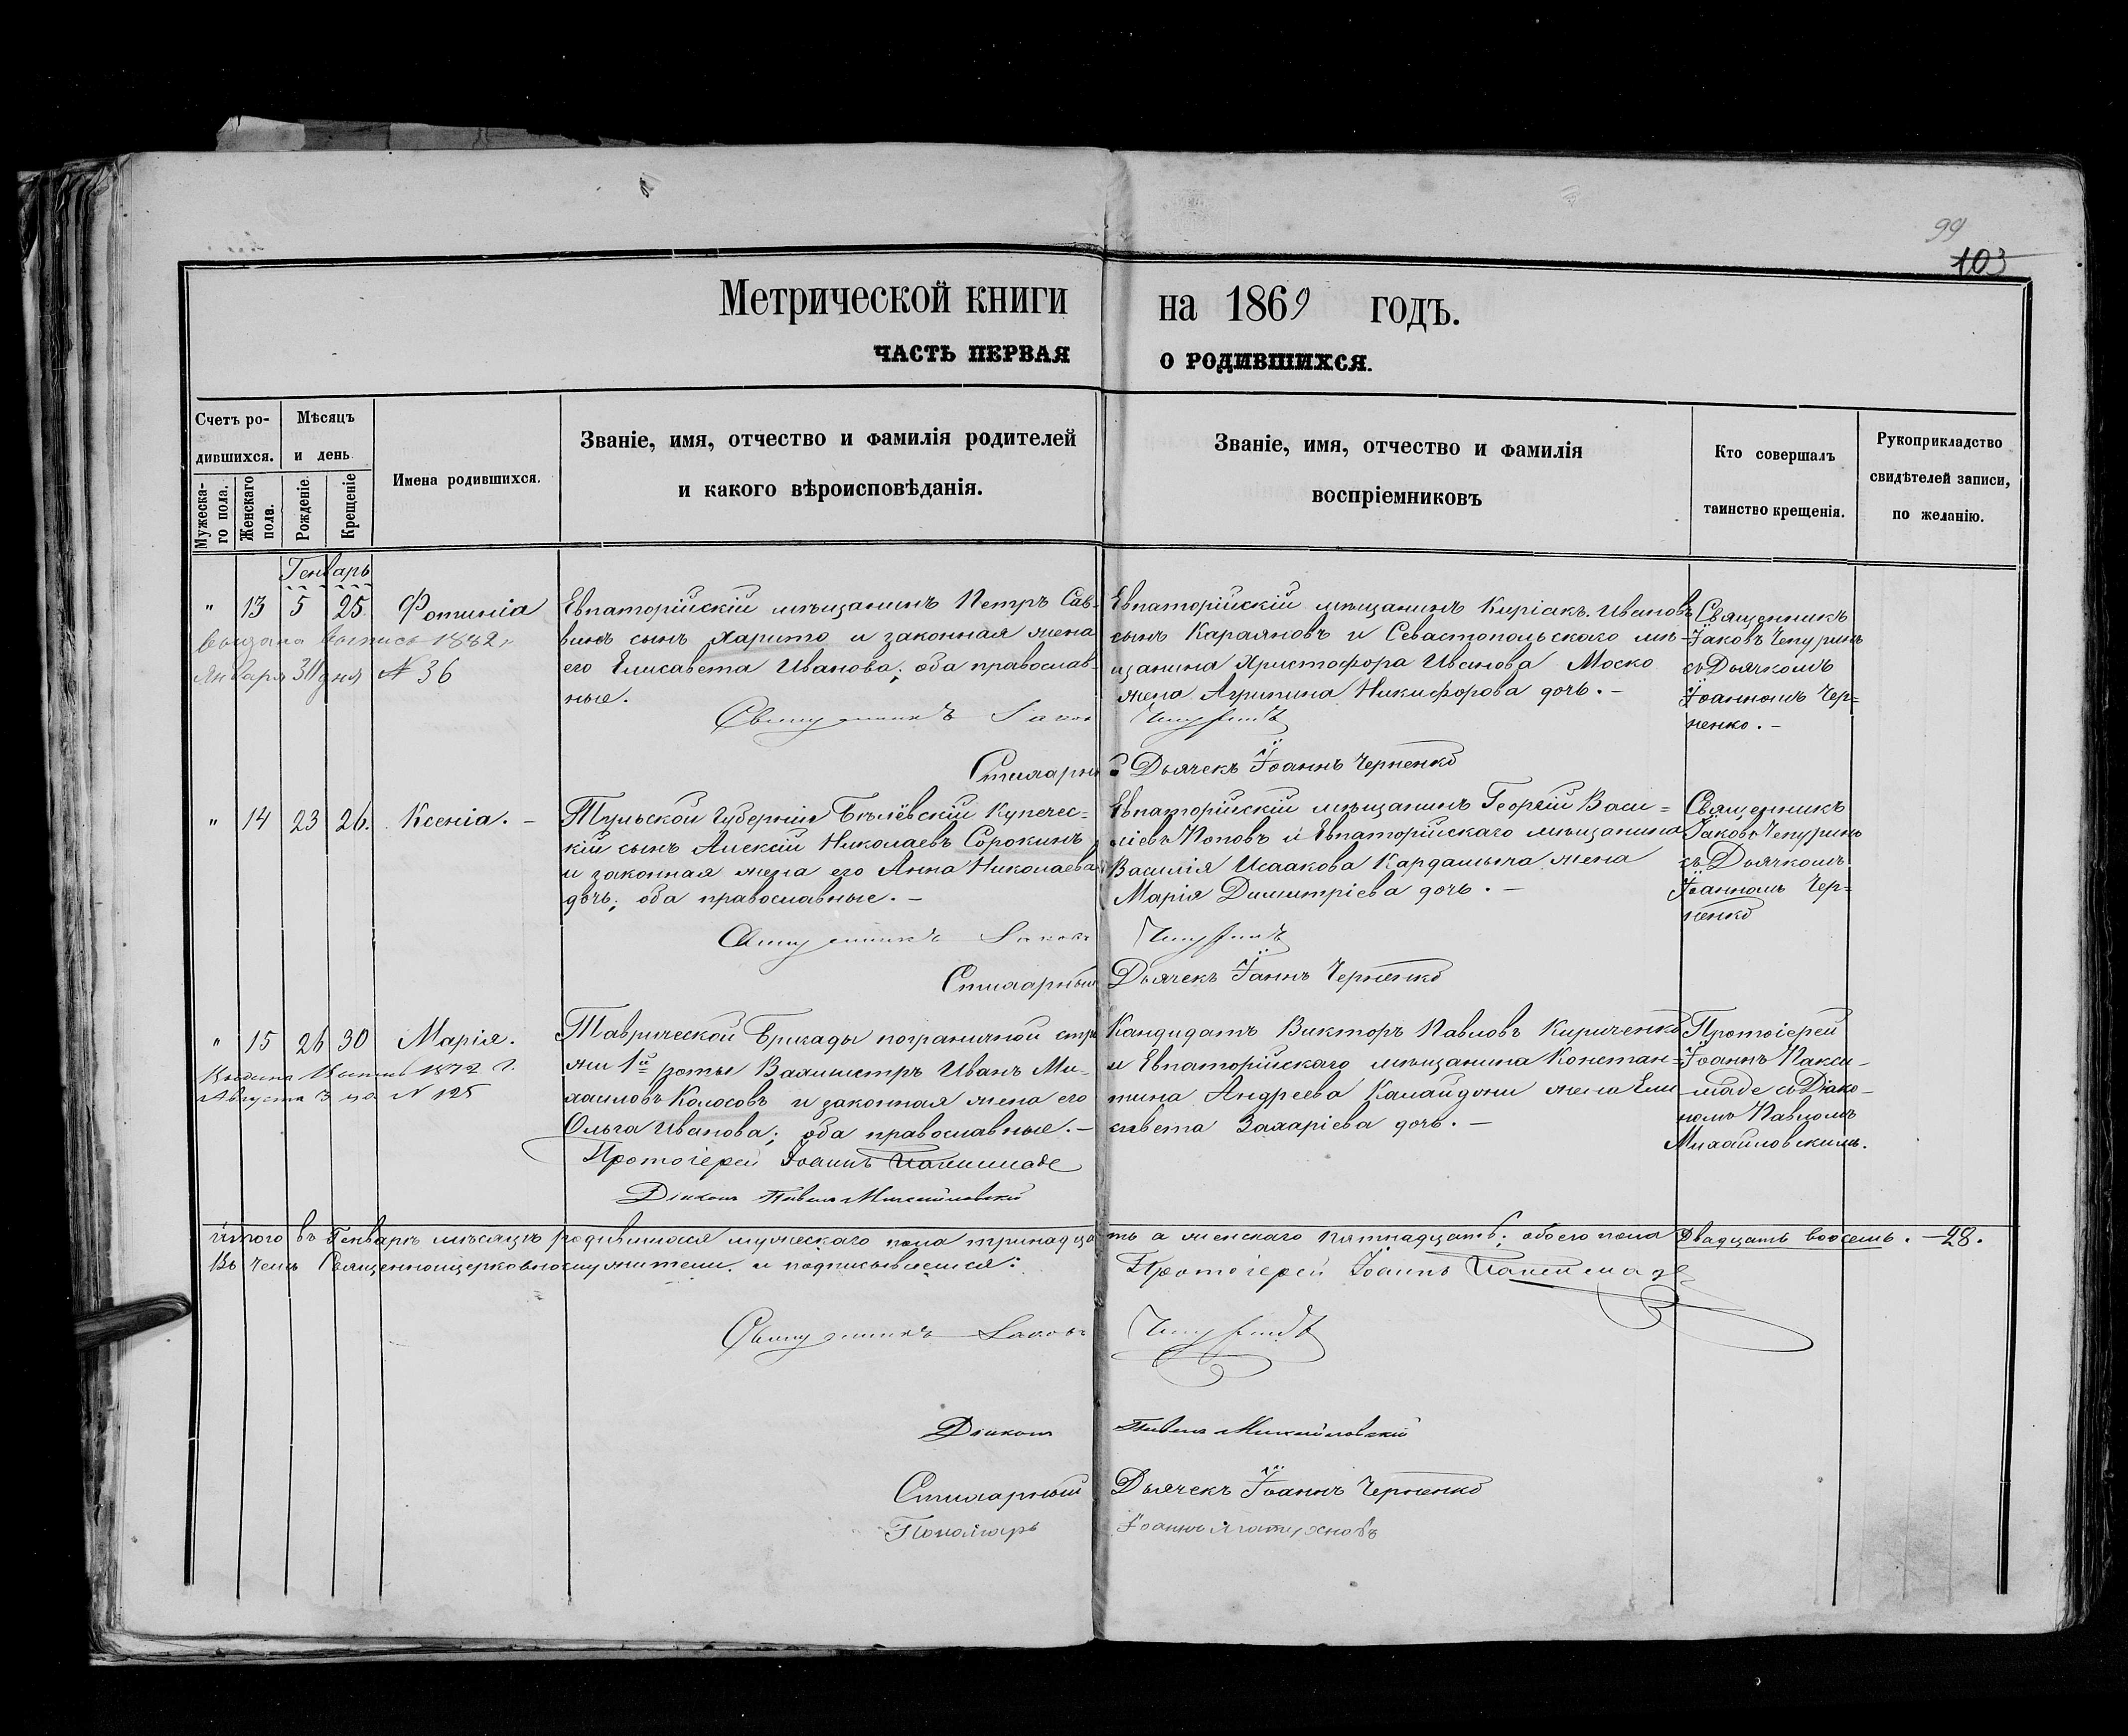 99
103
Метрической книги на 1869 годъ.
ЧАСТЬ ПЕРВАЯ О РОДИВШИХСЯ.
Счетъ родившихся.
Мужескаго пола.
Женскаго пола.
Мѣсяцъ и день
Рожденіе.
Крещеніе
Имена родившихся.
Званіе, имя, отчество и фамилія родителей
и какого вѣроисповѣданія.
Званіе, имя, отчество и фамилія
воспріемниковъ
Кто совершалъ
таинство крещенія.
Рукоприкладство
свидѣтелей записи,
по желанію.
Генварь
" 13 5 25. Фотинія
выдана выпись 1882 г.
Января 30 дня № 36
Евпаторійскій мѣщанинъ Петръ Сав-
винъ сынъ Харито и законная жена
его Елисавета Иванова; оба православ-
ные.
Евпаторійскій мѣщанинъ Киріакъ Ивановъ
сынъ Караяновъ и Севастопольскаго мѣ-
щанина Христофора Иванова Моско
жена Агрипина Никифорова дочь. –
Священникъ
Іаковъ Чепуринъ
съ Дьячкомъ
Іоанномъ Чер=
ненко. –
Священникъ Іаковъ Чепуринъ
Стихарный Дьячекъ Іоаннъ Черненко
" 14 23 26. Ксенія. –
Тульской Губерніи Бѣлёвскій Купечес-
кій сынъ Алексѣй Николаевъ Сорокинъ
и законная жена его Анна Николаева
дочь; оба православные. –
Евпаторійскій мѣщанинъ Георгій Васи=
ліевъ Поповъ и Евпаторійскаго мѣщанина
Василія Исаакова Кардамыча жена
Марія Димитріева дочь. –
Священникъ
Іаковъ Чепуринъ
съ Дьячкомъ
Іоанномъ Чер=
ненко
Священникъ Іаковъ Чепуринъ
Стихарный Дьячекъ Іоаннъ Черненко
" 15 26 30 Марія.
Выдана Выпись 1872 г.
Августа 3 № 125
Таврической Бригады пограничной стра
жи 1й роты Вахмистръ Иванъ Ми-
хаиловъ Колосовъ и законная жена его
Ольга Иванова; оба православные. –
Кандидатъ Викторъ Павловъ Кириченко
и Евпаторійскаго мѣщанина Констан=
тина Андреева Калайджи жена Ели
савета Захаріева дочь. –
Протоіерей
Іоаннъ Пакси-
маде съ Діако-
номъ Павломъ
Михайловскимъ.
Протоіерей Іоаннъ Паксимаде
Діаконъ Павелъ Михайловскій
Итого въ Генварѣ мѣсяцѣ родившихся мужескаго пола тринадцать а женскаго пятнадцать; обоего пола Двадцать восемь. – 28.
Въ чемъ Священноцерковнослужители и подписываемся:
Протоіерей Іоаннъ Паксимаде
Священникъ Іаковъ Чепуринъ
Діаконъ Павелъ Михайловскій
Стихарный Дьячекъ Іоаннъ Черненко
Пономарь Іоаннъ